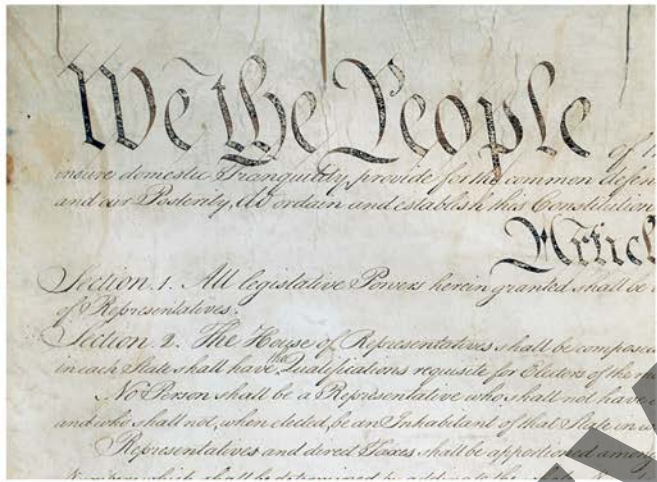 We the People of
insure domestic Tranquility, provide for the common defen
and our Posterity, do ordain and establish this Constitution
Articl
Section. 1. All legislative Powers herein granted shall be
of Representatives.
Section. 2. The House of Representatives shall be composed
in each State shall have the Qualifications requisite for Electors of the
No Person shall be a Representative who shall not have
and who shall not, when elected, be an Inhabitant of that State in
Representatives and direct Taxes shall be apportioned among
Numbers, which shall be determined by adding to the